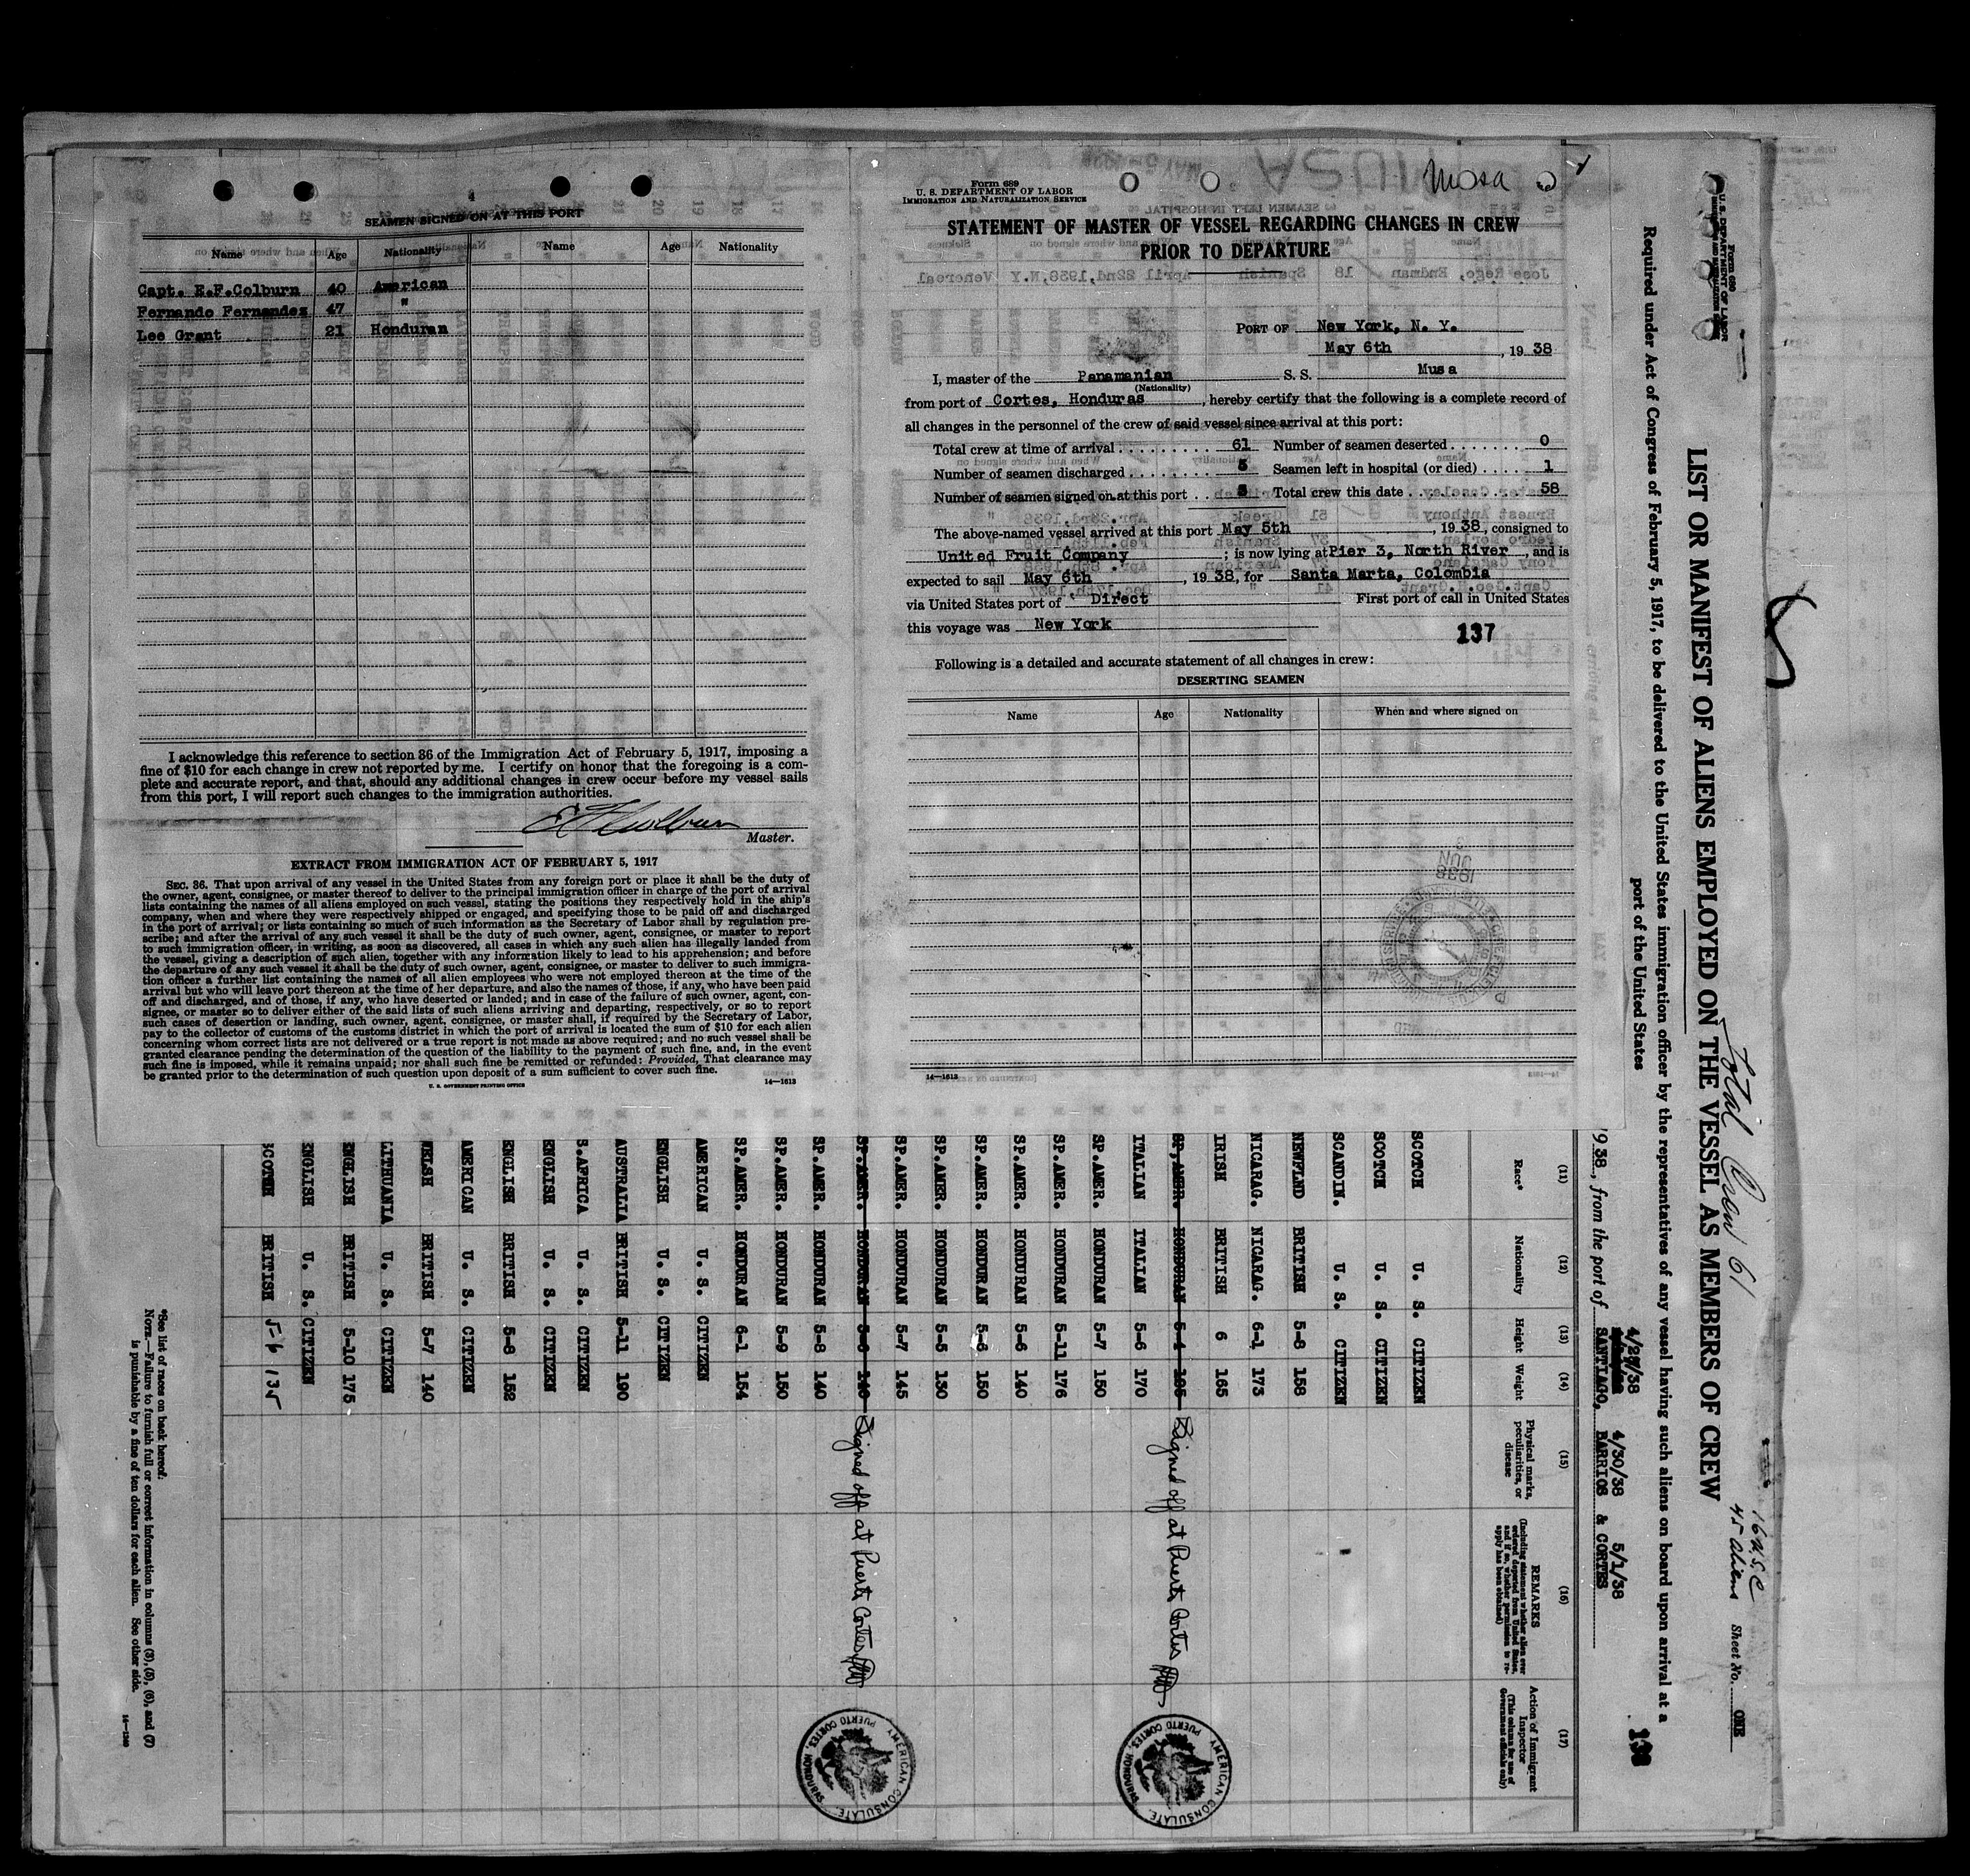 4
SEAMEN SIGNED ON AT THIS PORT
Name Age Nationality Name Age Nationality
Capt. E.F.Colburn 40 American
Fernando Fernandez 47 "
Lee Grant 21 Honduran
I acknowledge this reference to section 36 of the Immigration Act of February 5, 1917, imposing a
fine of $10 for each change in crew not reported by me. I certify on honor that the foregoing is a com-
plete and accurate report, and that, should any additional changes in crew occur before my vessel sails
from this port, I will report such changes to the immigration authorities.
Master.
EXTRACT FROM IMMIGRATION ACT OF FEBRUARY 5, 1917
SEC. 36. That upon arrival of any vessel in the United States from any foreign port or place it shall be the duty of
the owner, agent, consignee, or master thereof to deliver to the principal immigration officer in charge of the port of arrival
lists containing the names of all aliens employed on such vessel, stating the positions they respectively hold in the ship's
company, when and where they were respectively shipped or engaged, and specifying those to be paid off and discharged
in the port of arrival; or lists containing so much of such information as the Secretary of Labor shall by regulation pre-
scribe; and after the arrival of any such vessel it shall be the duty of such owner, agent, consignee, or master to report
to such immigration officer, in writing, as soon as discovered, all cases in which any such alien has illegally landed from
the vessel, giving a description of such alien, together with any information likely to lead to his apprehension; and before
the departure of any such vessel it shall be the duty of such owner, agent, consignee, or master to deliver to such immigra-
tion officer a further list containing the names of all alien employees who were not employed thereon at the time of the
arrival but who will leave port thereon at the time of her departure, and also the names of those, if any, who have been paid
off and discharged, and of those, if any, who have deserted or landed; and in case of the failure of such owner, agent, con-
signee, or master so to deliver either of the said lists of such aliens arriving and departing, respectively, or so to report
such cases of desertion or landing, such owner, agent, consignee, or master shall, if required by the Secretary of Labor,
pay to the collector of customs of the customs district in which the port of arrival is located the sum of $10 for each alien
concerning whom correct lists are not delivered or a true report is not made as above required; and no such vessel shall be
granted clearance pending the determination of the question of the liability to the payment of such fine, and, in the event
such fine is imposed, while it remains unpaid; nor shall such fine be remitted or refunded: Provided, That clearance may
be granted prior to the determination of such question upon deposit of a sum sufficient to cover such fine.
U. S. GOVERNMENT PRINTING OFFICE 14—1613
Form 689
U. S. DEPARTMENT OF LABOR
IMMIGRATION AND NATURALIZATION SERVICE
Musa
STATEMENT OF MASTER OF VESSEL REGARDING CHANGES IN CREW
PRIOR TO DEPARTURE
PORT OF New York, N. Y.
May 6th, 19 38
I, master of the Panamanian S. S. Musa
(Nationality)
from port of Cortes, Honduras, hereby certify that the following is a complete record of
all changes in the personnel of the crew of said vessel since arrival at this port:
Total crew at time of arrival 61 Number of seamen deserted 0
Number of seamen discharged 5 Seamen left in hospital (or died) 1
Number of seamen signed on at this port 3 Total crew this date 58
The above-named vessel arrived at this port May 5th, 19 38, consigned to
United Fruit Company; is now lying at Pier 3, North River, and is
expected to sail May 6th, 19 38, for Santa Marta, Colombia
via United States port of Direct First port of call in United States
this voyage was New York
137
Following is a detailed and accurate statement of all changes in crew:
DESERTING SEAMEN
Name Age Nationality When and where signed on
14—1613
Form 680
U. S. DEPARTMENT OF LABOR
Total Crew 61
16 U.S.C
45 Aliens
Sheet No. ONE
LIST OR MANIFEST OF ALIENS EMPLOYED ON THE VESSEL AS MEMBERS OF CREW
Required under Act of Congress of February 5, 1917, to be delivered to the United States immigration officer by the representatives of any vessel having such aliens on board upon arrival at a
port of the United States
138
4/29/38 4/30/38 5/1/38
1938, from the port of SANTIAGO, BARRIOS & CORTES
(11) (12) (13) (14) (15) (16) (17)
Race* Nationality Height Weight Physical marks, peculiarities, or disease REMARKS (Including statement whether alien ever ordered deported from United States, and if so, whether permission to reapply has been obtained) Action of Immigrant Inspector (This column for use of Government officials only)
SCOTCH U. S. CITIZEN
SCOTCH U. S. CITIZEN
SCANDIN. U. S. CITIZEN
NEWFLND BRITISH 5-8 158
NICARAG. NICARAG. 6-1 173
IRISH BRITISH 6 165
SP.AMER. HONDURAN 5-4 Signed off at Puerto Cortes
ITALIAN ITALIAN 5-6 170
SP.AMER. HONDURAN 5-7 150
SP.AMER. HONDURAN 5-11 176
SP.AMER. HONDURAN 5-6 140
SP.AMER. HONDURAN 5-6 150
SP.AMER. HONDURAN 5-5 130
SP.AMER. HONDURAN 5-7 145
SP.AMER. HONDURAN 140 Signed off at Puerto Cortes
SP.AMER. HONDURAN 5-8 140
SP.AMER. HONDURAN 5-9 150
SP.AMER. HONDURAN 6-1 154
AMERICAN U. S. CITIZEN
ENGLISH U. S. CITIZEN
AUSTRALIA BRITISH 5-11 190
S.AFRICA U. S. CITIZEN
ENGLISH U. S. CITIZEN
ENGLISH BRITISH 5-8 152
AMERICAN U. S. CITIZEN
WELSH BRITISH 5-7 140
LITHUANIA U. S. CITIZEN
ENGLISH BRITISH 5-10 175
ENGLISH U. S. CITIZEN
SCOTCH BRITISH 5-6 135
AMERICAN CONSULATE,
PUERTO CORTES, HONDURAS
AMERICAN CONSULATE,
PUERTO CORTES, HONDURAS
*See list of races on back hereof.
NOTE.—Failure to furnish full or correct information in columns (3), (5), (6), and (7)
is punishable by a fine of ten dollars for each alien. See other side.